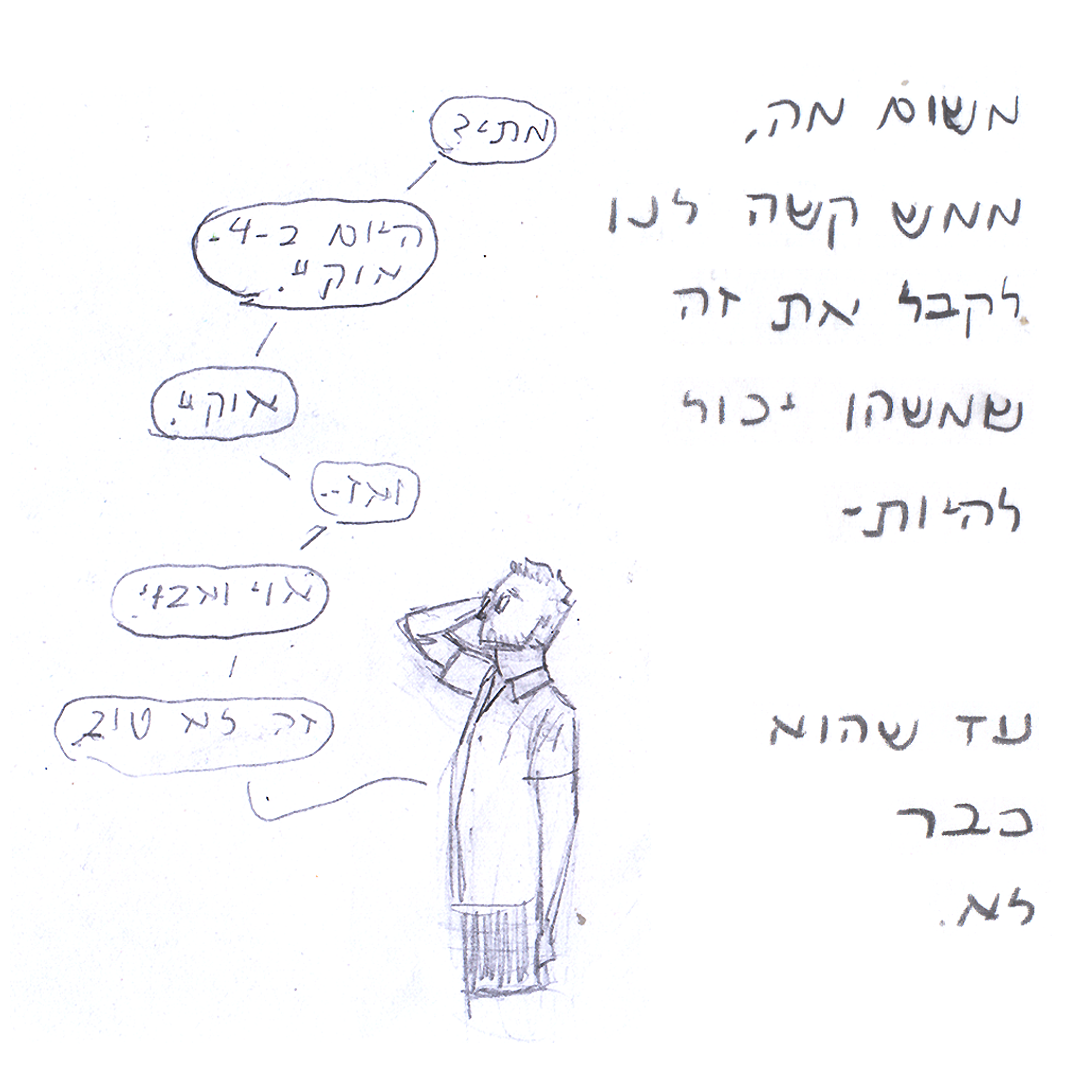 משום מה,
ממש קשה לנו
לקבל את זה
שמשהו יכול
להיות-
עד שהוא
כבר
לא.
מתי?
היום ב-4-
אוקיי.
אוקיי.
ואז--
אוי ואבוי
זה לא טוב.